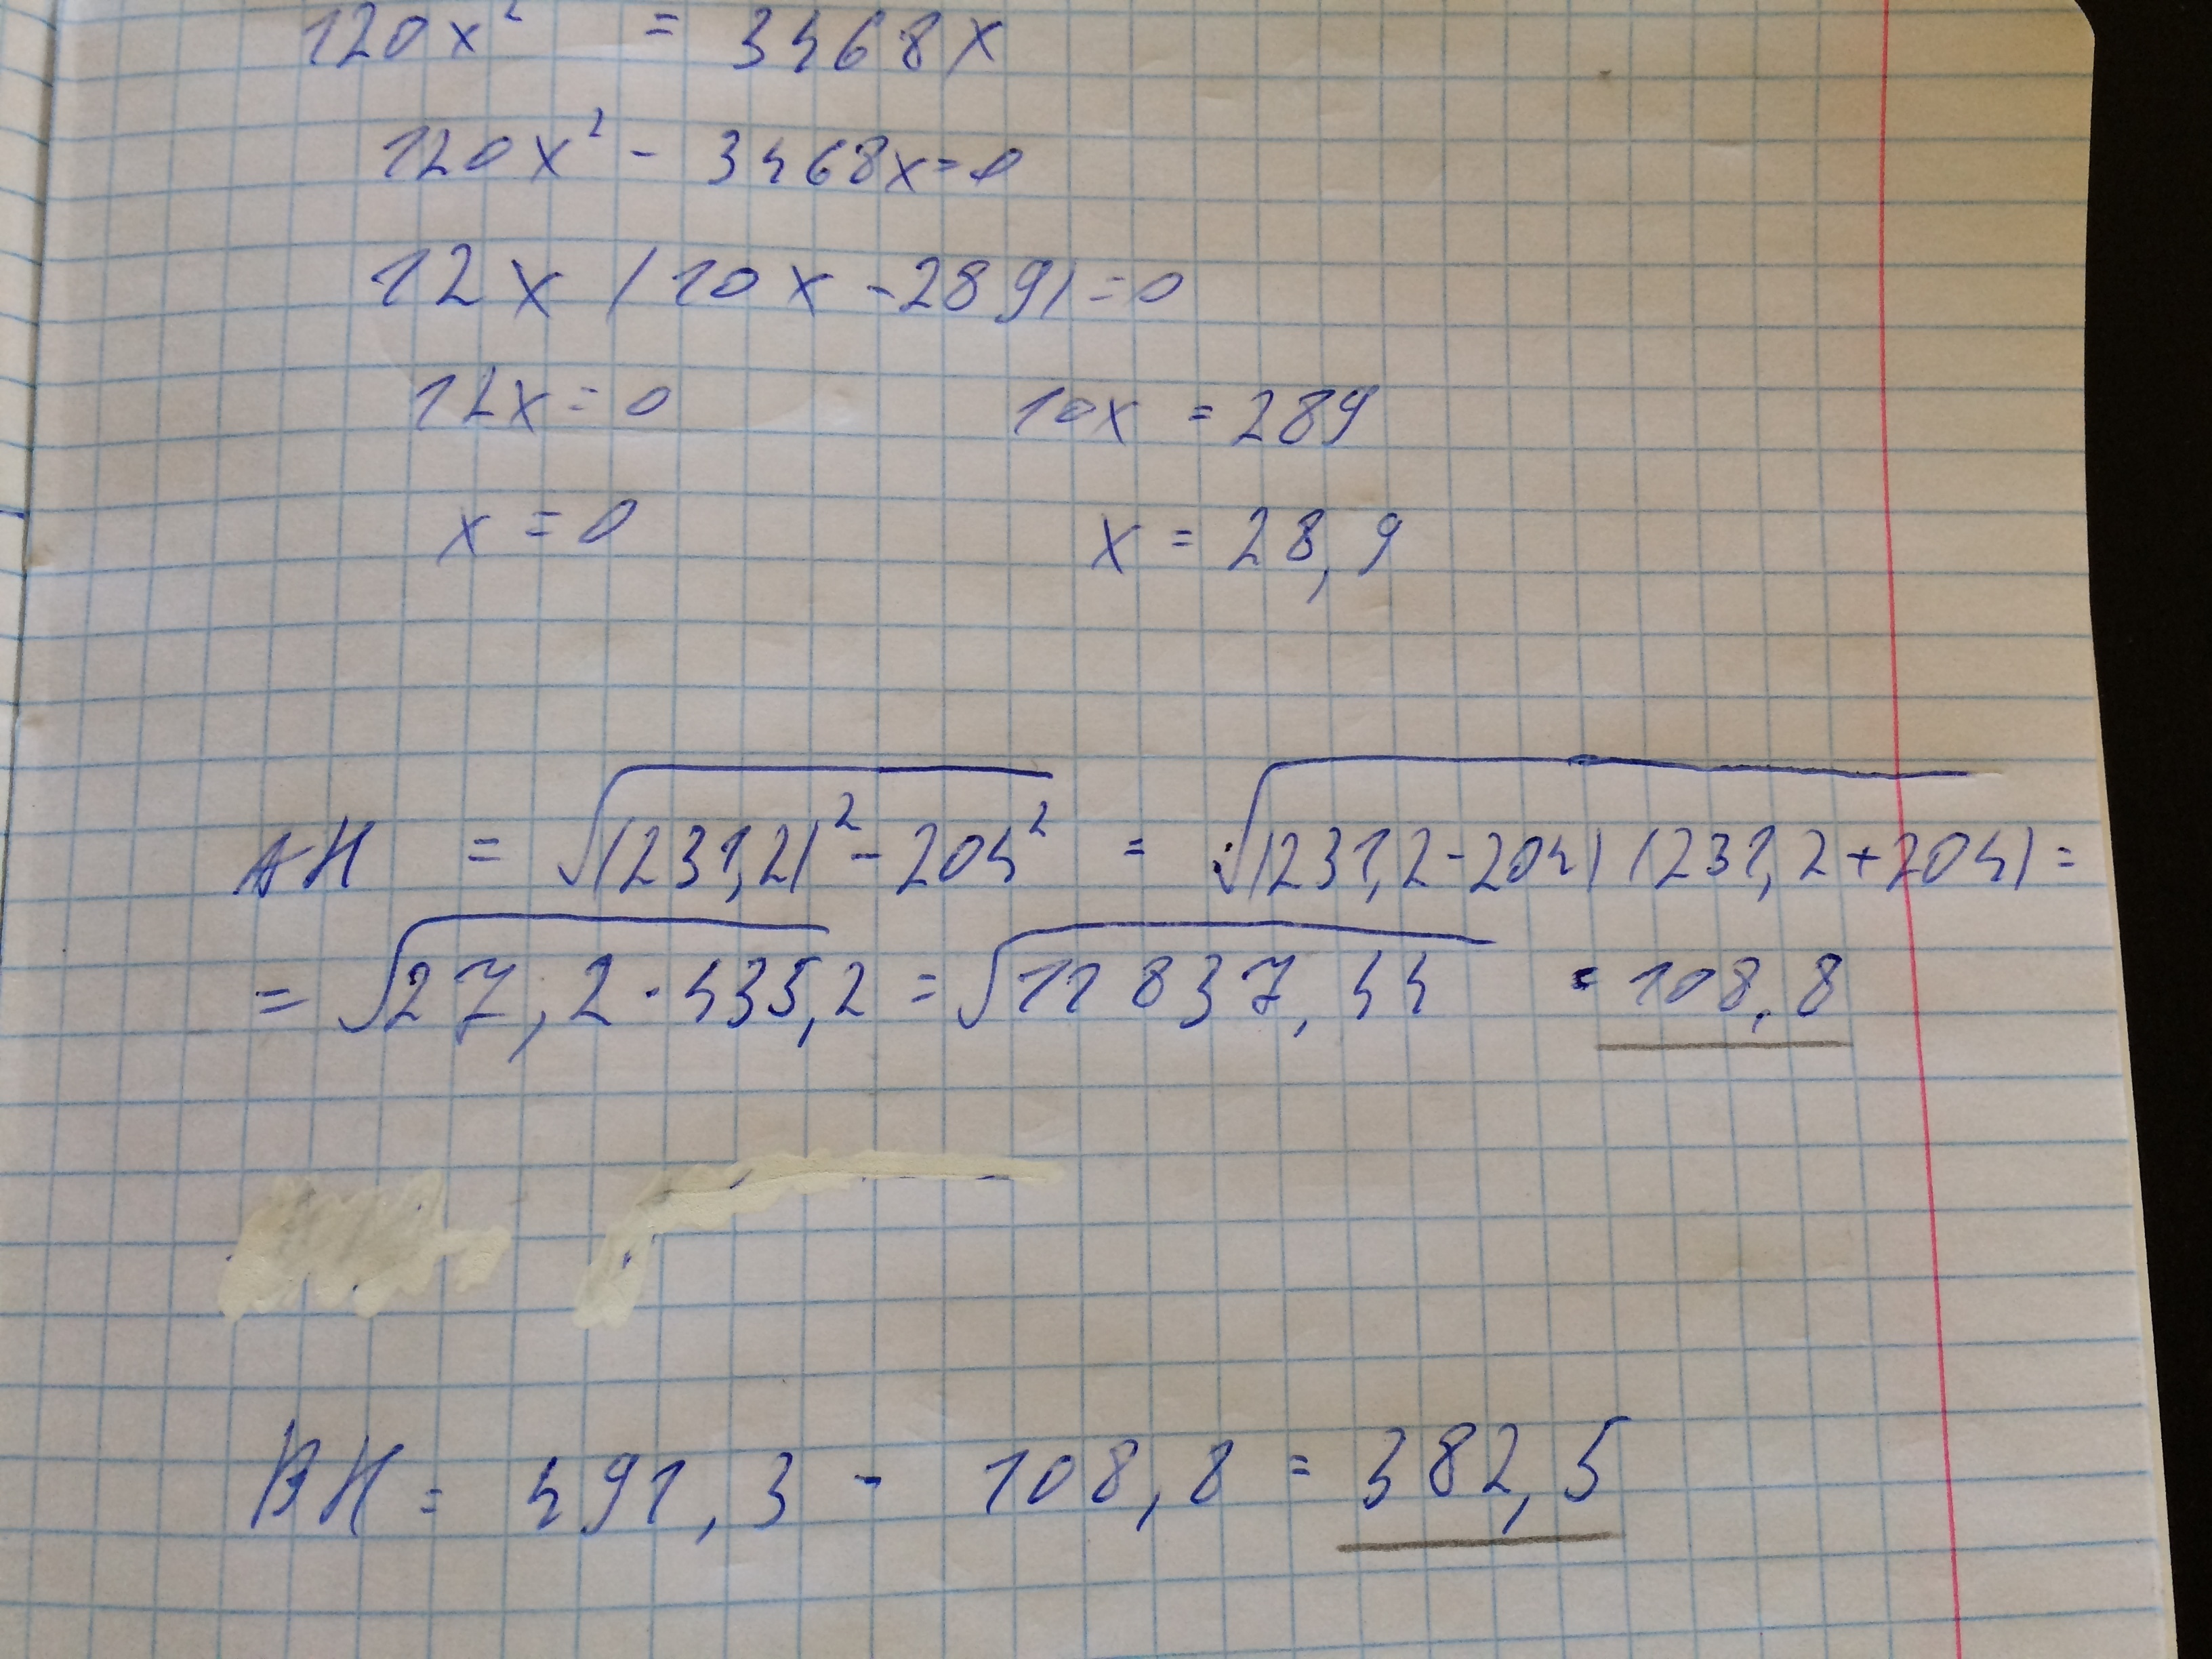 120x² = 3468x
120x² - 3468x = 0
12x (10x - 289) = 0
12x = 0 10x = 289
x = 0 x = 28,9
AH = √(231,2)² - 204² = √(231,2 - 204) (231,2 + 204) =
= √27,2 · 435,2 = √11837,44 = 108,8
BH = 491,3 - 108,8 = 382,5